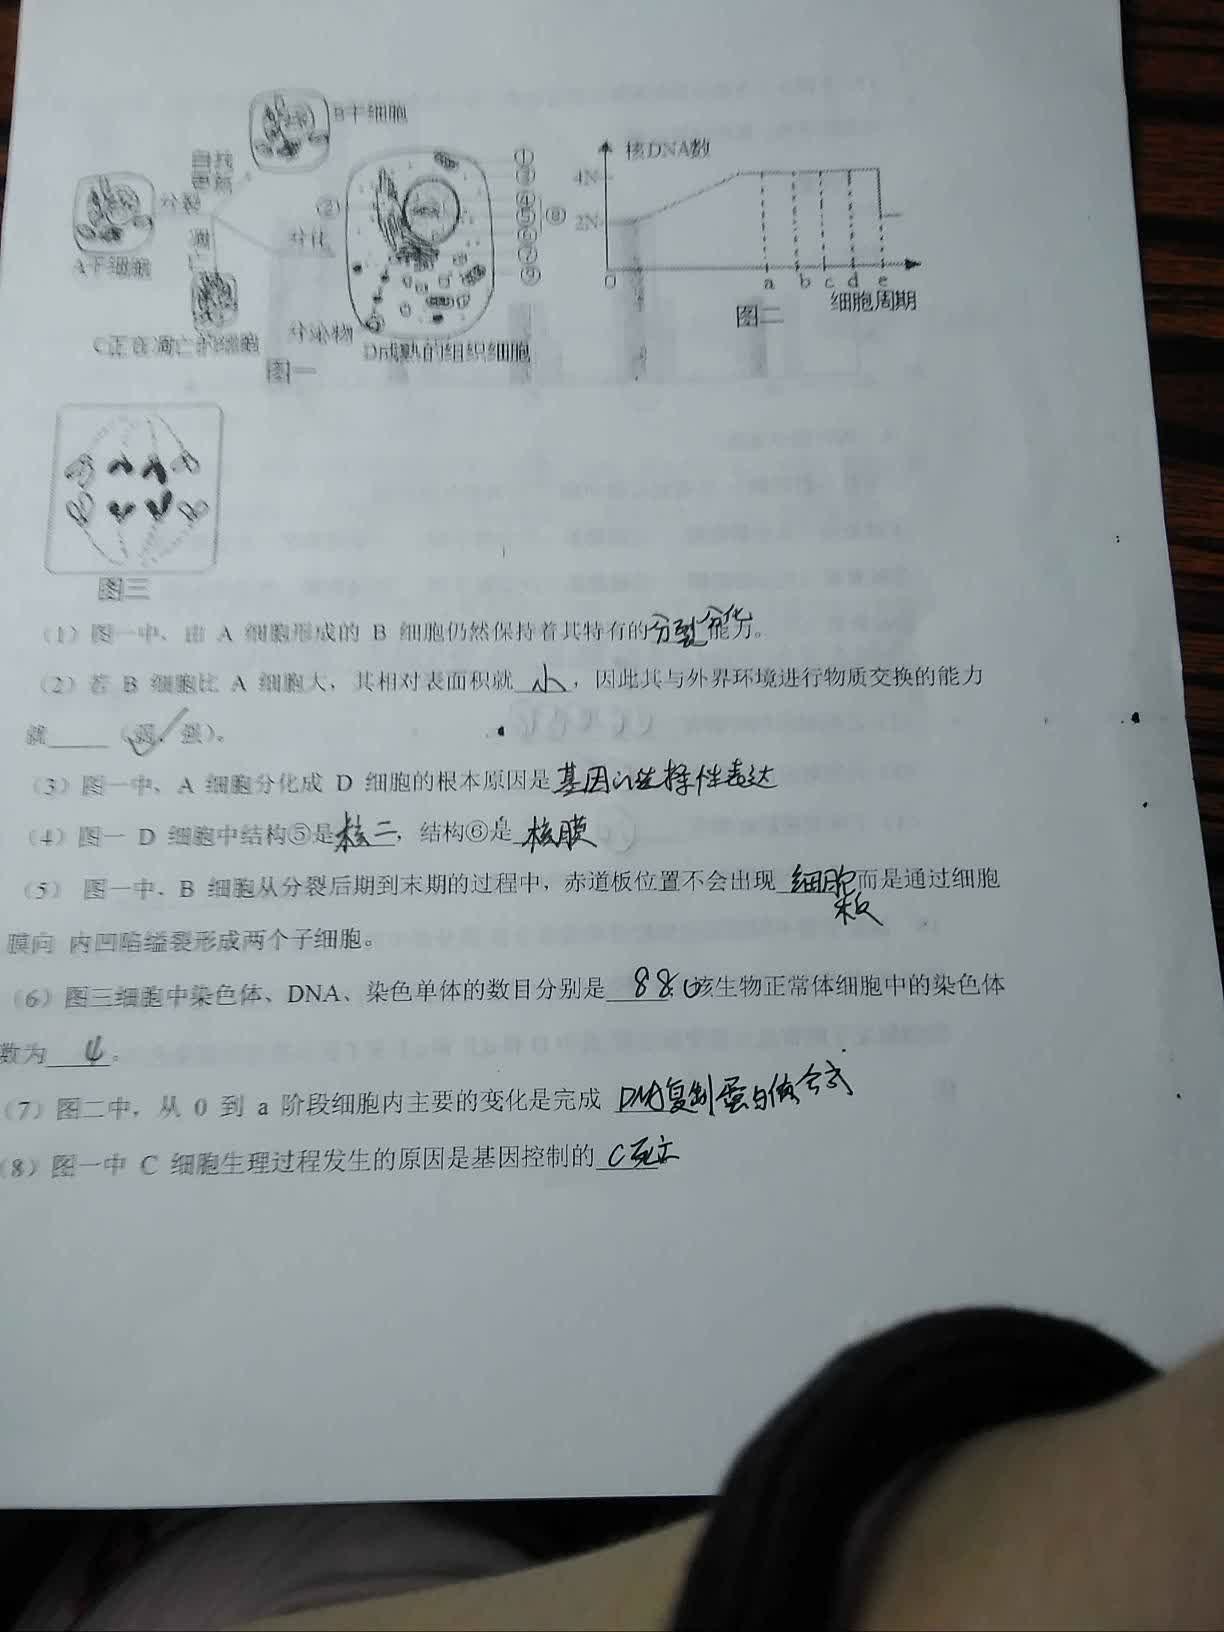 B干细胞
自我
更新
A干细胞
分裂
凋亡
C正在凋亡的细胞
分化
分泌物
D成熟的组织细胞
图一
① ② ③ ④ ⑤ ⑥ ⑦ ⑧ ⑨
核DNA数
4N
2N
0 a b c d e
细胞周期
图二
图三
(1)图一中、由 A 细胞形成的 B 细胞仍然保持着其特有的分裂分化能力。
(2)若 B 细胞比 A 细胞大，其相对表面积就 小 ，因此其与外界环境进行物质交换的能力
就____（弱、强）。 ✓
(3)图一中、A 细胞分化成 D 细胞的根本原因是基因的选择性表达
(4)图一 D 细胞中结构⑤是核仁，结构⑥是 核膜
(5) 图一中、B 细胞从分裂后期到末期的过程中，赤道板位置不会出现 细胞板 而是通过细胞
膜向 内凹陷缢裂形成两个子细胞。
(6)图三细胞中染色体、DNA、染色单体的数目分别是 8 8.0 该生物正常体细胞中的染色体
数为 4 。
(7)图二中，从 0 到 a 阶段细胞内主要的变化是完成 DNA复制蛋白质合成
(8)图一中 C 细胞生理过程发生的原因是基因控制的